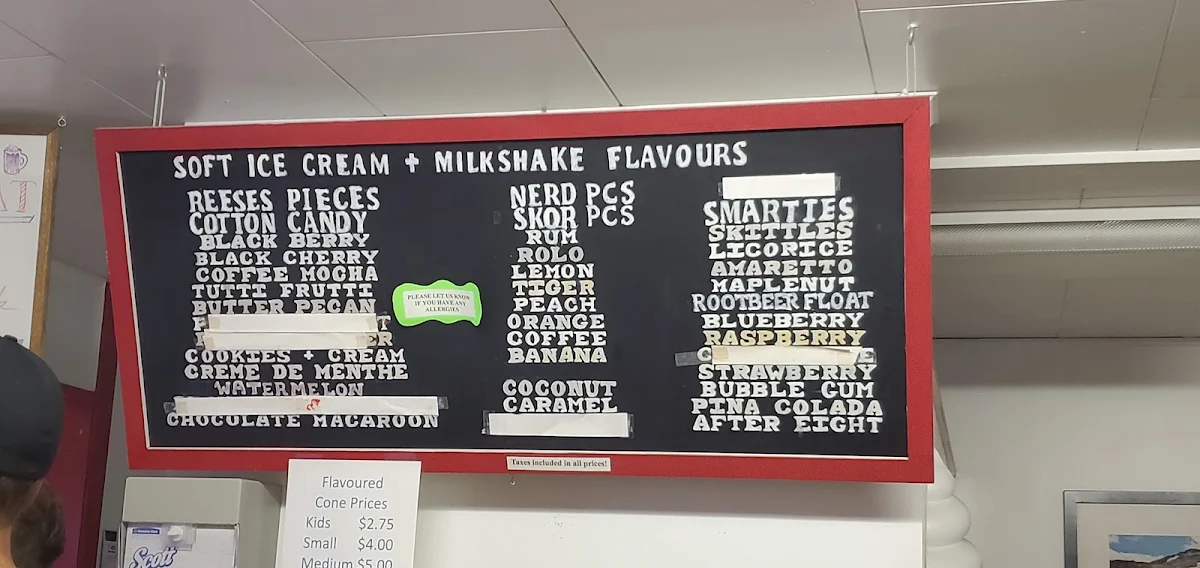 SOFT ICE CREAM + MILKSHAKE FLAVOURS
REESES PIECES
COTTON CANDY
BLACK BERRY
BLACK CHERRY
COFFEE MOCHA
TUTTI FRUTTI
BUTTER PECAN
COOKIES + CREAM
CREME DE MENTHE
WATERMELON
CHOCOLATE MACAROON
PLEASE LET US KNOW
IF YOU HAVE ANY
ALLERGIES
NERD PCS
SKOR PCS
RUM
ROLO
LEMON
TIGER
PEACH
ORANGE
COFFEE
BANANA
COCONUT
CARAMEL
SMARTIES
SKITTLES
LICORICE
AMARETTO
MAPLENUT
ROOTBEER FLOAT
BLUEBERRY
RASPBERRY
STRAWBERRY
BUBBLE GUM
PINA COLADA
AFTER EIGHT
Taxes included in all prices!
Flavoured
Cone Prices
Kids $2.75
Small $4.00
Medium $5.00
Scott